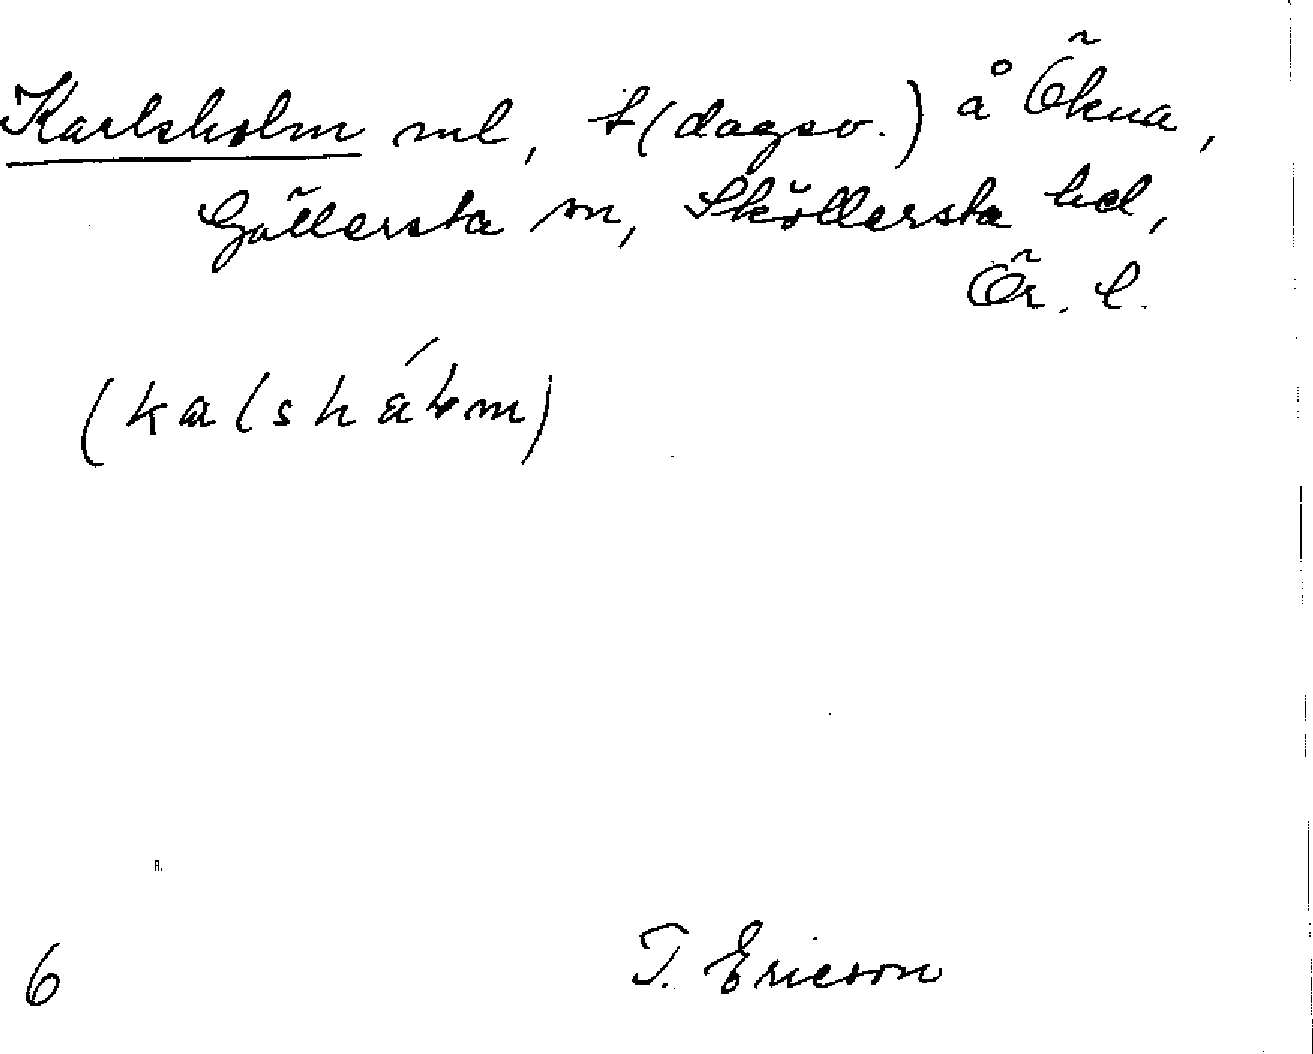 Karlsholm ml, t (dagsv.) å Ökna,
Gällersta sn, Sköllersta hd,
Ör. l.
(kalshålm)
6
T. Ericson